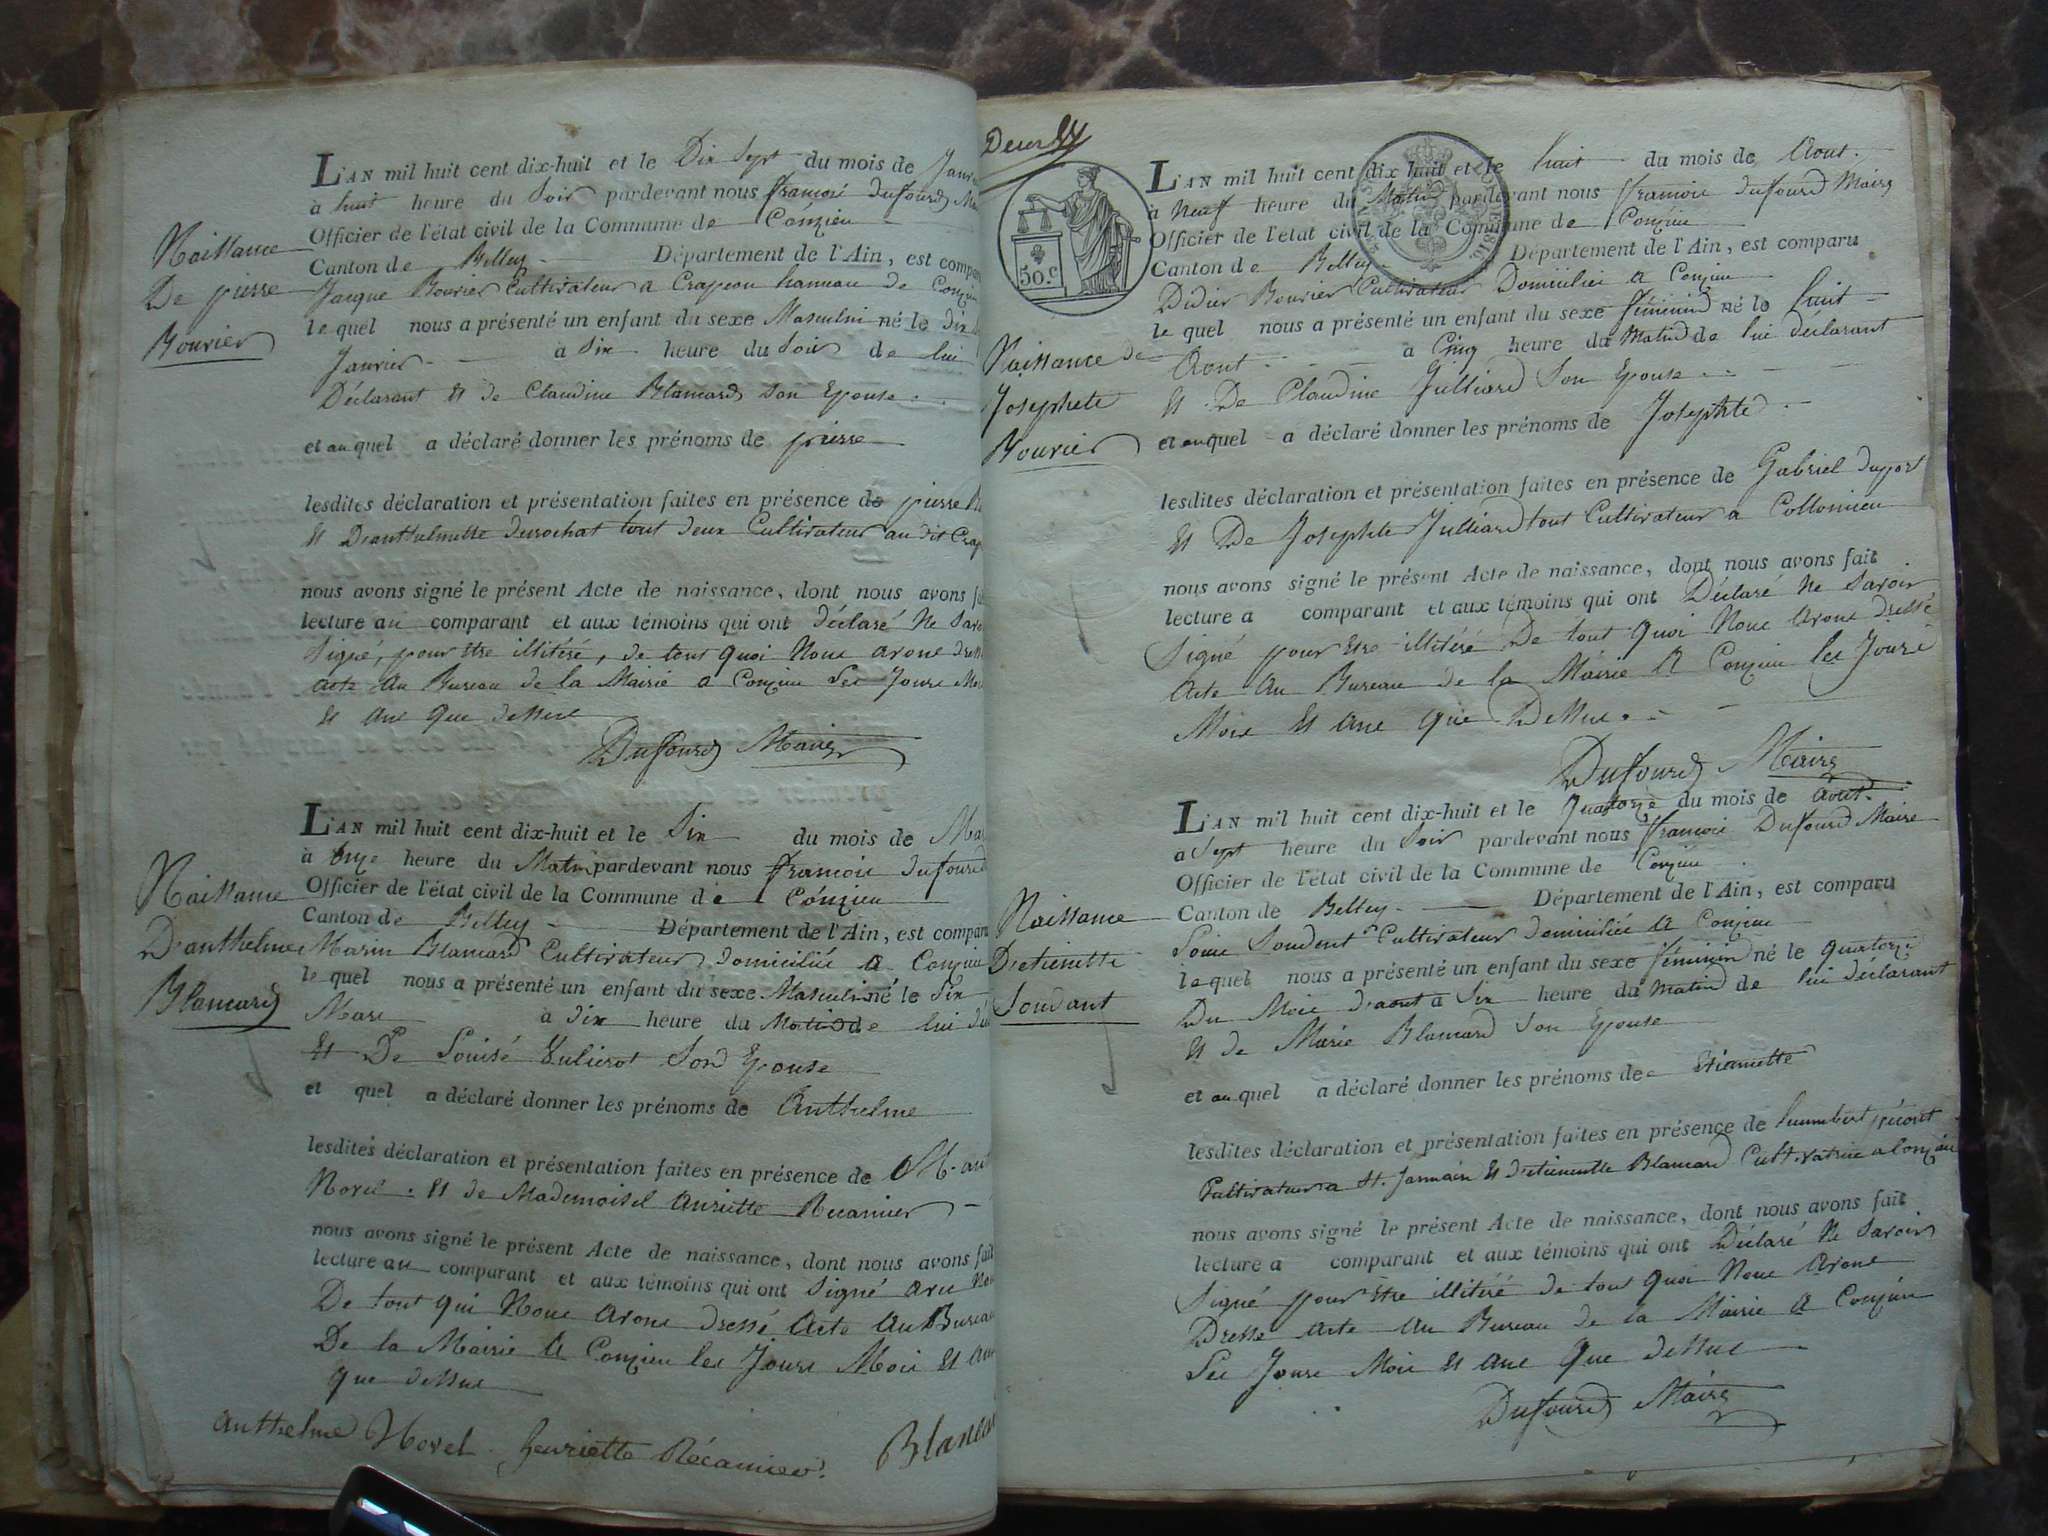 L'AN mil huit cent dix-huit et le Dix Sept du mois de Janvi
à huit heure du Soir pardevant nous françoi Dufourd Ma
Officier de l'état civil de la Commune de Conzieu
Naissance
Canton de Belley Département de l'Ain, est compar
De pierre
Jaque Bouvier Cultivateur a Crapeou hameau de Conzieu
le quel nous a présenté un enfant du sexe Masculin né le dix
Bouvier
Janvier à Six heure du Soir de lui
Déclarant Et de Claudine Blancard Son Epouse
et au quel a déclaré donner les prénoms de pierre
lesdites déclaration et présentation faites en présence de pierre
Et D'anthelmette Durochat tout deux Cultivateur au dit Crap
nous avons signé le présent Acte de naissance, dont nous avons fa
lecture au comparant et aux témoins qui ont déclaré Ne Savo
Signé, pour Etre illitéré, de tout quoi Nous avons dre
acte au Bureau de la Mairie a Conzieu Les Jours Moi
Et ans que dessus
Dufourd Maire
L'AN mil huit cent dix-huit et le Six du mois de Mar
à onze heure du Matin pardevant nous françoi Dufourd
Naissance
Officier de l'état civil de la Commune de Conzieu
Canton de Belley Département de l'Ain, est compar
D'anthelme
Marin Blancard Cultivateur domicilié a Conzieu
le quel nous a présenté un enfant du sexe Masculin né le Six
Blancard
Mars à dix heure du Matin de lui dé
Et De Louise Son Epouse
et quel a déclaré donner les prénoms de Anthelme
lesdites déclaration et présentation faites en présence de M. ant
Novel. Et de Mademoisel auriette Recamier
nous avons signé le présent Acte de naissance, dont nous avons fait
lecture au comparant et aux témoins qui ont Signé avec No
De tout qui Nous avons dressé Acte Au Bureau
De la Mairie a Conzieu les Jours Moi Et an
que dessus
Anthelme Novel henriette Récamier Blanca
Deux
L'AN mil huit cent dix-huit et le huit du mois de Aout
à Neuf heure du Matin pardevant nous françoi dufourd Maire
Officier de l'etat civil de la Commune de Conzieu
50 c
Canton de Belley Département de l'Ain, est comparu
Didier Bouvier Cultivateur Domicilié a Conzieu
le quel nous a présenté un enfant du sexe féminin né le huit
Naissance de
Aout à Cinq heure du Matin de lui déclarant
Josephete
Et De Claudine Julliard Son Epouse
Bouvier
et au quel a déclaré donner les prénoms de Josephte
lesdites déclaration et présentation faites en présence de Gabriel duport
Et De Josephte Julliard tout Cultivateur a Collomieu
nous avons signé le présent Acte de naissance, dont nous avons fait
lecture a comparant et aux témoins qui ont Déclaré Ne Savoir
Signé pour Etre illitéré De tout quoi Nous avons dressé
Acte Au Bureau de la Mairie A Conzieu les Jours
Mois Et ans que Dessus
Dufourd Maire
L'AN mil huit cent dix-huit et le Quatorze du mois de Aout
à Sept heure du Soir pardevant nous françoi Dufourd Maire
Officier de l'état civil de la Commune de Conzieu
Naissance
Canton de Belley Département de l'Ain, est comparu
Loui Soudent Cultivateur domicilié a Conzieu
D'etienette
le quel nous a présenté un enfant du sexe féminin né le quatorze
Soudant
Du Mois d'aout a Six heure du matin de lui déclarant
Et de Marie Blancard Son Epouse
et au quel a déclaré donner les prénoms de Etiennette
lesdites déclaration et présentation faites en présence de humbert
Cultivateur a St. Jermain Et d'etiennette Blancard Cultivatrice a Conzieu
nous avons signé le présent Acte de naissance, dont nous avons fait
lecture a comparant et aux témoins qui ont Déclaré Ne Savoir
Signé pour Etre illitéré de tout quoi Nous avons
Dressé acte Au Bureau de la Mairie A Conzieu
Les Jours Mois Et ans que dessus
Dufourd Maire